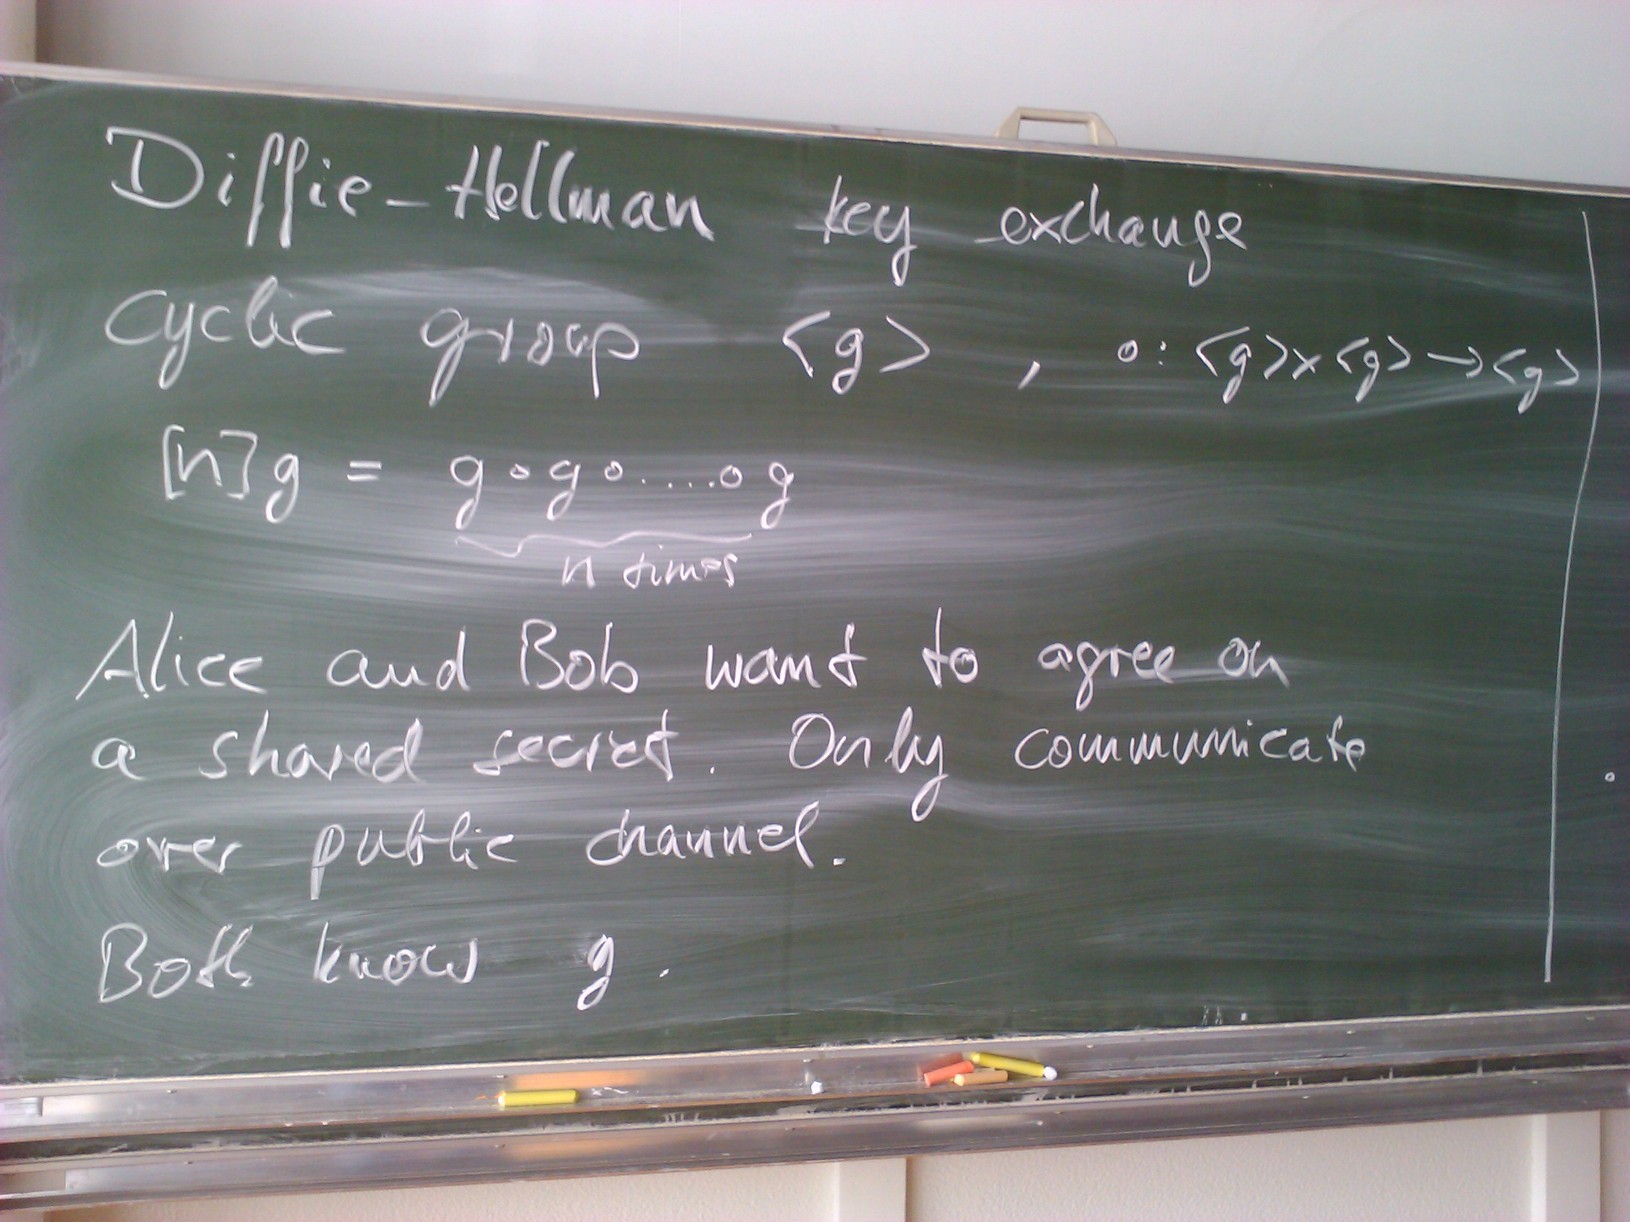 Diffie-Hellman key exchange
Cyclic group <g> , ∘: <g>×<g>→<g>
[n]g = g∘g∘.....∘g
n times
Alice and Bob want to agree on
a shared secret. Only communicate
over public channel.
Both know g.